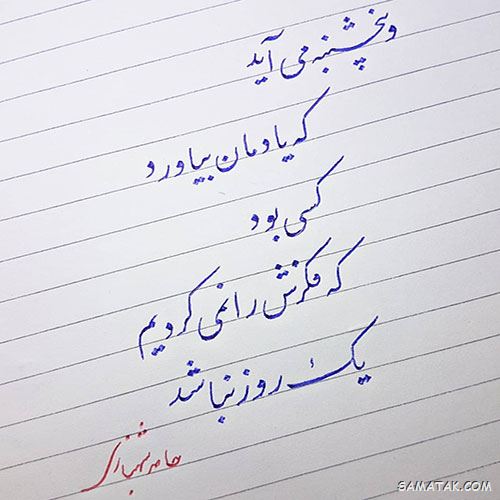 و پنجشنبه می آید
که یادمان بیاورد
کسی بود
که فکرش را نمی کردیم
یک روز نباشد
SAMATAK.COM